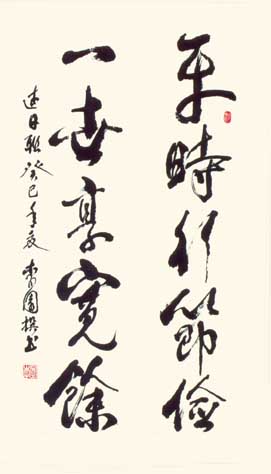 平時行節儉
一世享寬餘
近日聯癸巳年夏李國撰書